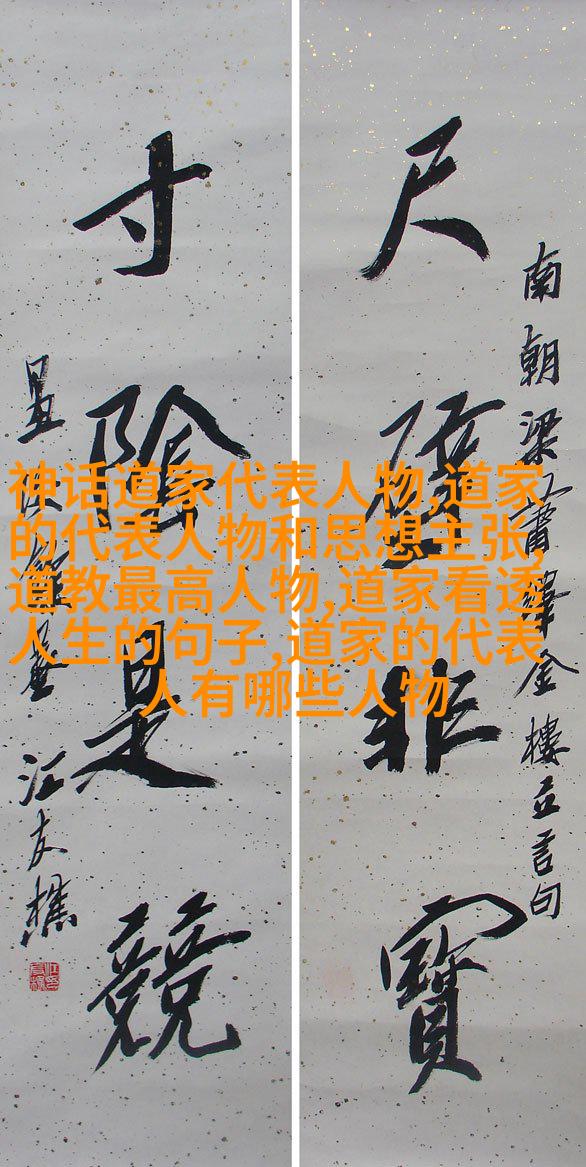 神话道家代表人物,道家
的代表人物和思想主张,
道教最高人物,道家看透
人生的句子,道家的代表
人有哪些人物
南朝梁蕭繹金樓立言句
尺璧非寶
寸陰是競
汪友樵